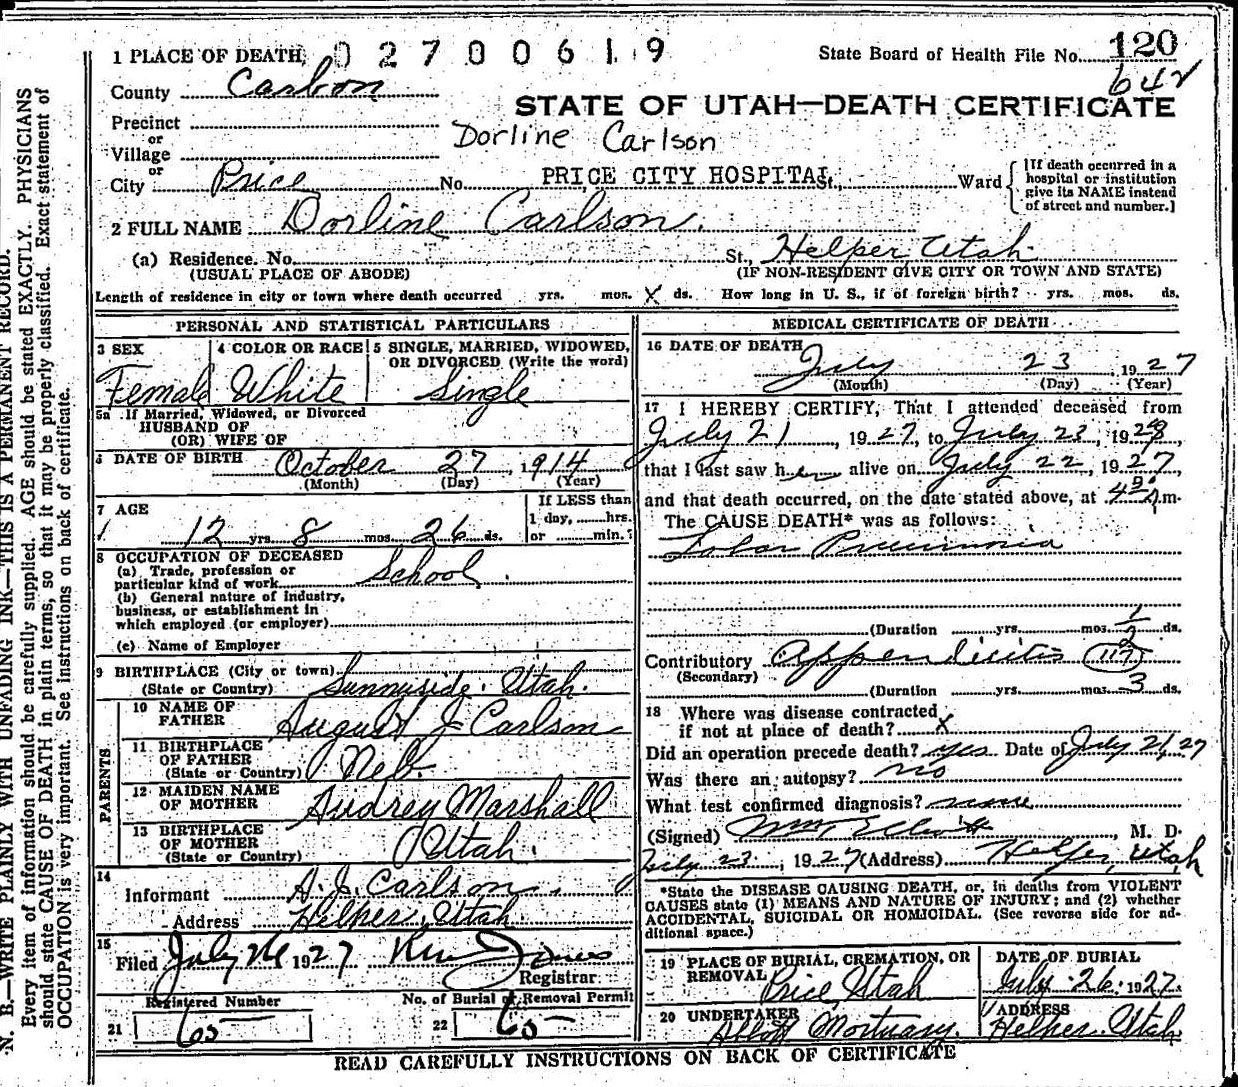 1 PLACE OF DEATH 02700619 State Board of Health File No. 120
642
County Carbon
STATE OF UTAH—DEATH CERTIFICATE
Precinct
or
Village
Dorline Carlson
or
City Price No. PRICE CITY HOSPITAL St., Ward
[If death occurred in a hospital or institution give its NAME instead of street and number.]
2 FULL NAME Dorline Carlson.
(a) Residence. No. St., Helper, Utah
(USUAL PLACE OF ABODE) (IF NON-RESIDENT GIVE CITY OR TOWN AND STATE)
Length of residence in city or town where death occurred yrs. mos. X ds. How long in U. S., if of foreign birth? yrs. mos. ds.
PERSONAL AND STATISTICAL PARTICULARS
3 SEX 4 COLOR OR RACE 5 SINGLE, MARRIED, WIDOWED,
OR DIVORCED (Write the word)
Female White Single
5a If Married, Widowed, or Divorced
HUSBAND OF
(OR) WIFE OF
6 DATE OF BIRTH October 27, 1914
(Month) (Day) (Year)
7 AGE If LESS than
12 yrs. 8 mos. 26 ds. 1 day, hrs.
or min.?
8 OCCUPATION OF DECEASED
(a) Trade, profession or
particular kind of work School.
(b) General nature of industry,
business, or establishment in
which employed (or employer)
(c) Name of Employer
9 BIRTHPLACE (City or town)
(State or Country) Sunnyside. Utah.
PARENTS
10 NAME OF
FATHER August J Carlson
11 BIRTHPLACE
OF FATHER
(State or Country) Neb.
12 MAIDEN NAME
OF MOTHER Audrey Marshall
13 BIRTHPLACE
OF MOTHER
(State or Country) Utah.
14
Informant A. J. Carlson
Address Helper, Utah.
15
Filed July 26 1927
Registrar
Registered Number No. of Burial or Removal Permit
21 65 22 65
MEDICAL CERTIFICATE OF DEATH
16 DATE OF DEATH
July 23 1927
(Month) (Day) (Year)
17 I HEREBY CERTIFY, That I attended deceased from
July 21, 1927, to July 23, 1928,
that I last saw her alive on July 22, 1927
and that death occurred, on the date stated above, at m.
The CAUSE DEATH* was as follows:
Lobar Pneumonia
(Duration yrs. mos. 1/2 ds.
Contributory Appendicitis 117
(Secondary)
(Duration yrs. mos. 3 ds.
18 Where was disease contracted
if not at place of death? X
Did an operation precede death? yes. Date of July 21, 27
Was there an autopsy? no
What test confirmed diagnosis? none
(Signed) Wm. Elliott, M. D.
July 23, 1927 (Address) Helper, Utah
*State the DISEASE CAUSING DEATH, or, in deaths from VIOLENT
CAUSES state (1) MEANS AND NATURE OF INJURY; and (2) whether
ACCIDENTAL, SUICIDAL OR HOMICIDAL. (See reverse side for ad-
ditional space.)
19 PLACE OF BURIAL, CREMATION, OR
REMOVAL Price, Utah
DATE OF BURIAL
July 26, 1927.
20 UNDERTAKER
Mortuary.
ADDRESS
Helper. Utah
READ CAREFULLY INSTRUCTIONS ON BACK OF CERTIFICATE
N. B.—WRITE PLAINLY WITH UNFADING INK—THIS IS A PERMANENT RECORD.
Every item of information should be carefully supplied. AGE should be stated EXACTLY. PHYSICIANS
should state CAUSE OF DEATH in plain terms, so that it may be properly classified. Exact statement of
OCCUPATION is very important. See instructions on back of certificate.